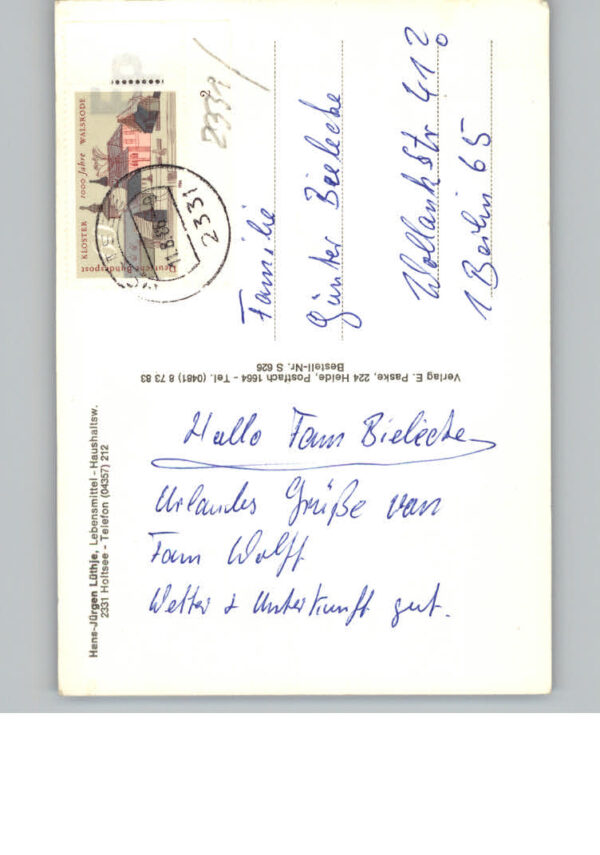 Hallo Fam Bielecke
Urlaubs Grüße von
Fam Wolff
Wetter + Unterkunft gut.
Hans-Jürgen Lüthje, Lebensmittel - Haushaltsw.
2331 Holtsee - Telefon (04357) 212
Verlag E. Paske, 224 Heide, Postfach 1664 - Tel. (0481) 8 73 83
Bestell-Nr. S 626
Familie
Günter Bielecke
Wollankstr 41
1 Berlin 65
KLOSTER 1000 Jahre WALSRODE
Deutsche Bundespost
2331
2331